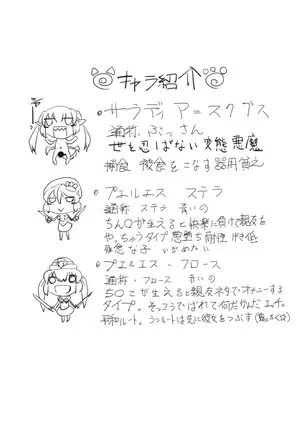 キャラ紹介
・サラディア=スクブス
通称 ぶっさん
世も忍ばない変態悪魔
捕食 被食をこなす器用貧乏
・プエルエス ステラ
通称 ステラ 青いの
ちん〇が生えると快楽に負けて親友を
やっちゃうタイプ 悪堕ち耐性 が低
残念な子 いぢめたい
・プエルエス・フロース
通称・フロース 赤いの
ち〇こが生えると親友ネタでオナニーする
タイプ。そっこうでばれて何だかんだエッチ。
平和ルート。うつルートは先に彼女をつぶす